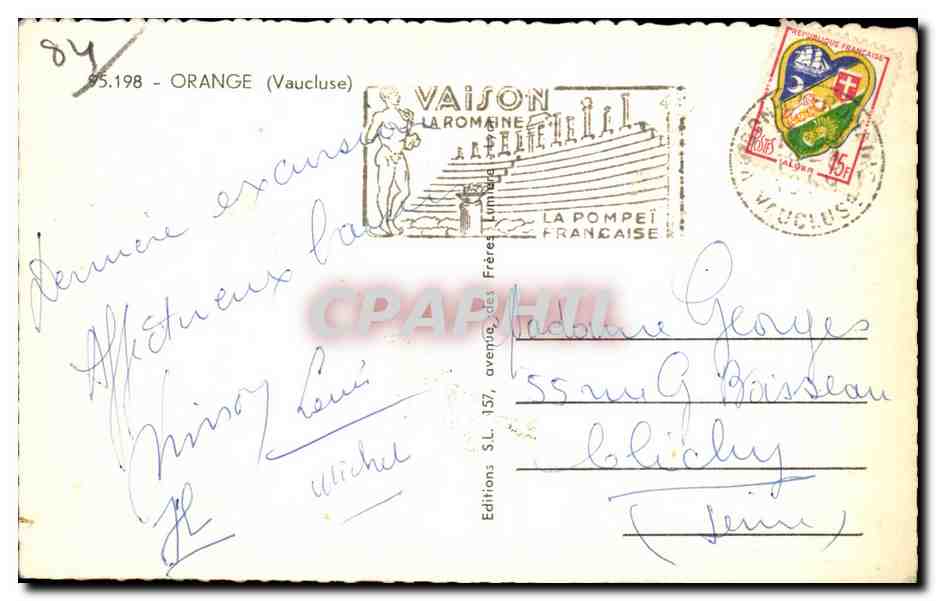 84
95.198 - ORANGE (Vaucluse)
VAISON
LA ROMAINE
LA POMPEÏ
FRANÇAISE
REPUBLIQUE FRANÇAISE
POSTES
ALGER
15F
VAUCLUSE
Dernière excursion
Affectueux
Louis
Michel
Editions S.L. 157, avenue des Frères Lumière
CPAPHIL
Madame Georges
55 rue G Boisseau
Clichy
(Seine)